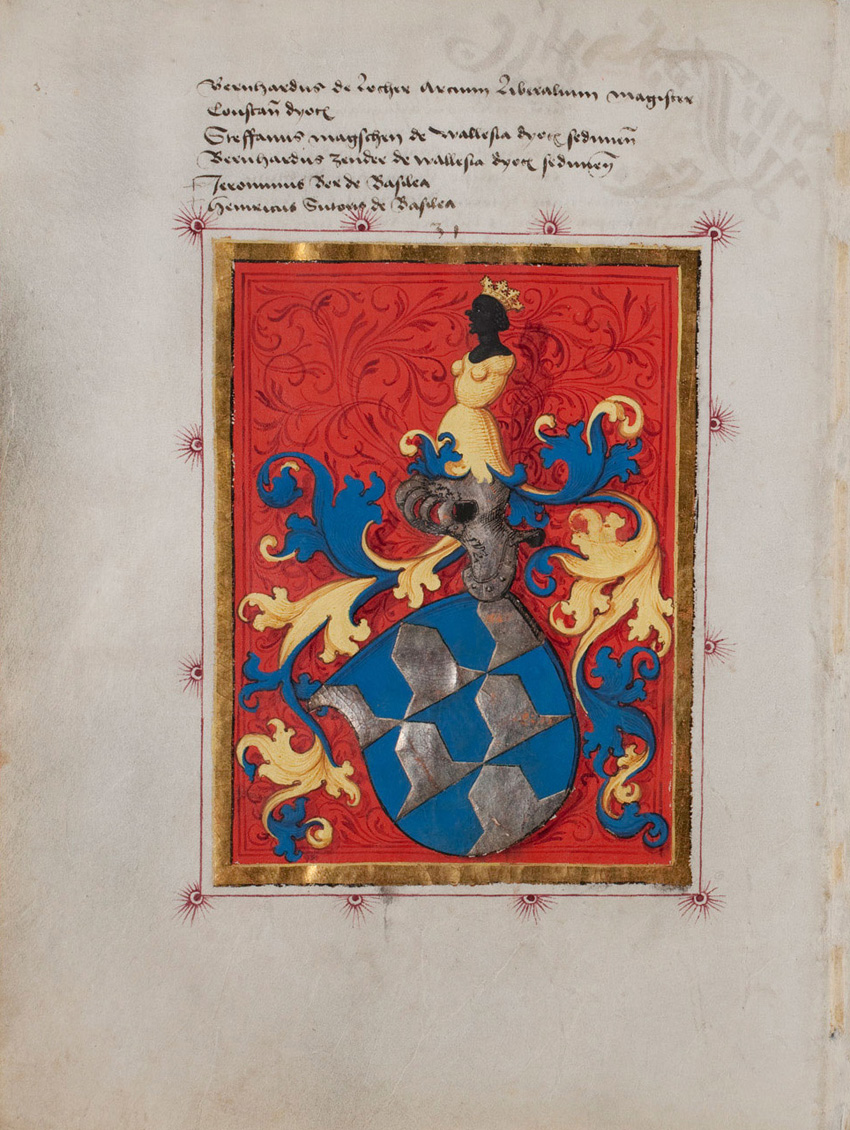 Bernhardus de Locher Arcium Liberalium magister
Constan̄ dyoc
Steffanus magschen de Wallesia dyoc sedunen̄
Bernhardus zender de wallesia dyoc sedunen̄
Jeronimus Ber de Basilea
Heinricus Sutoris de Basilea
31